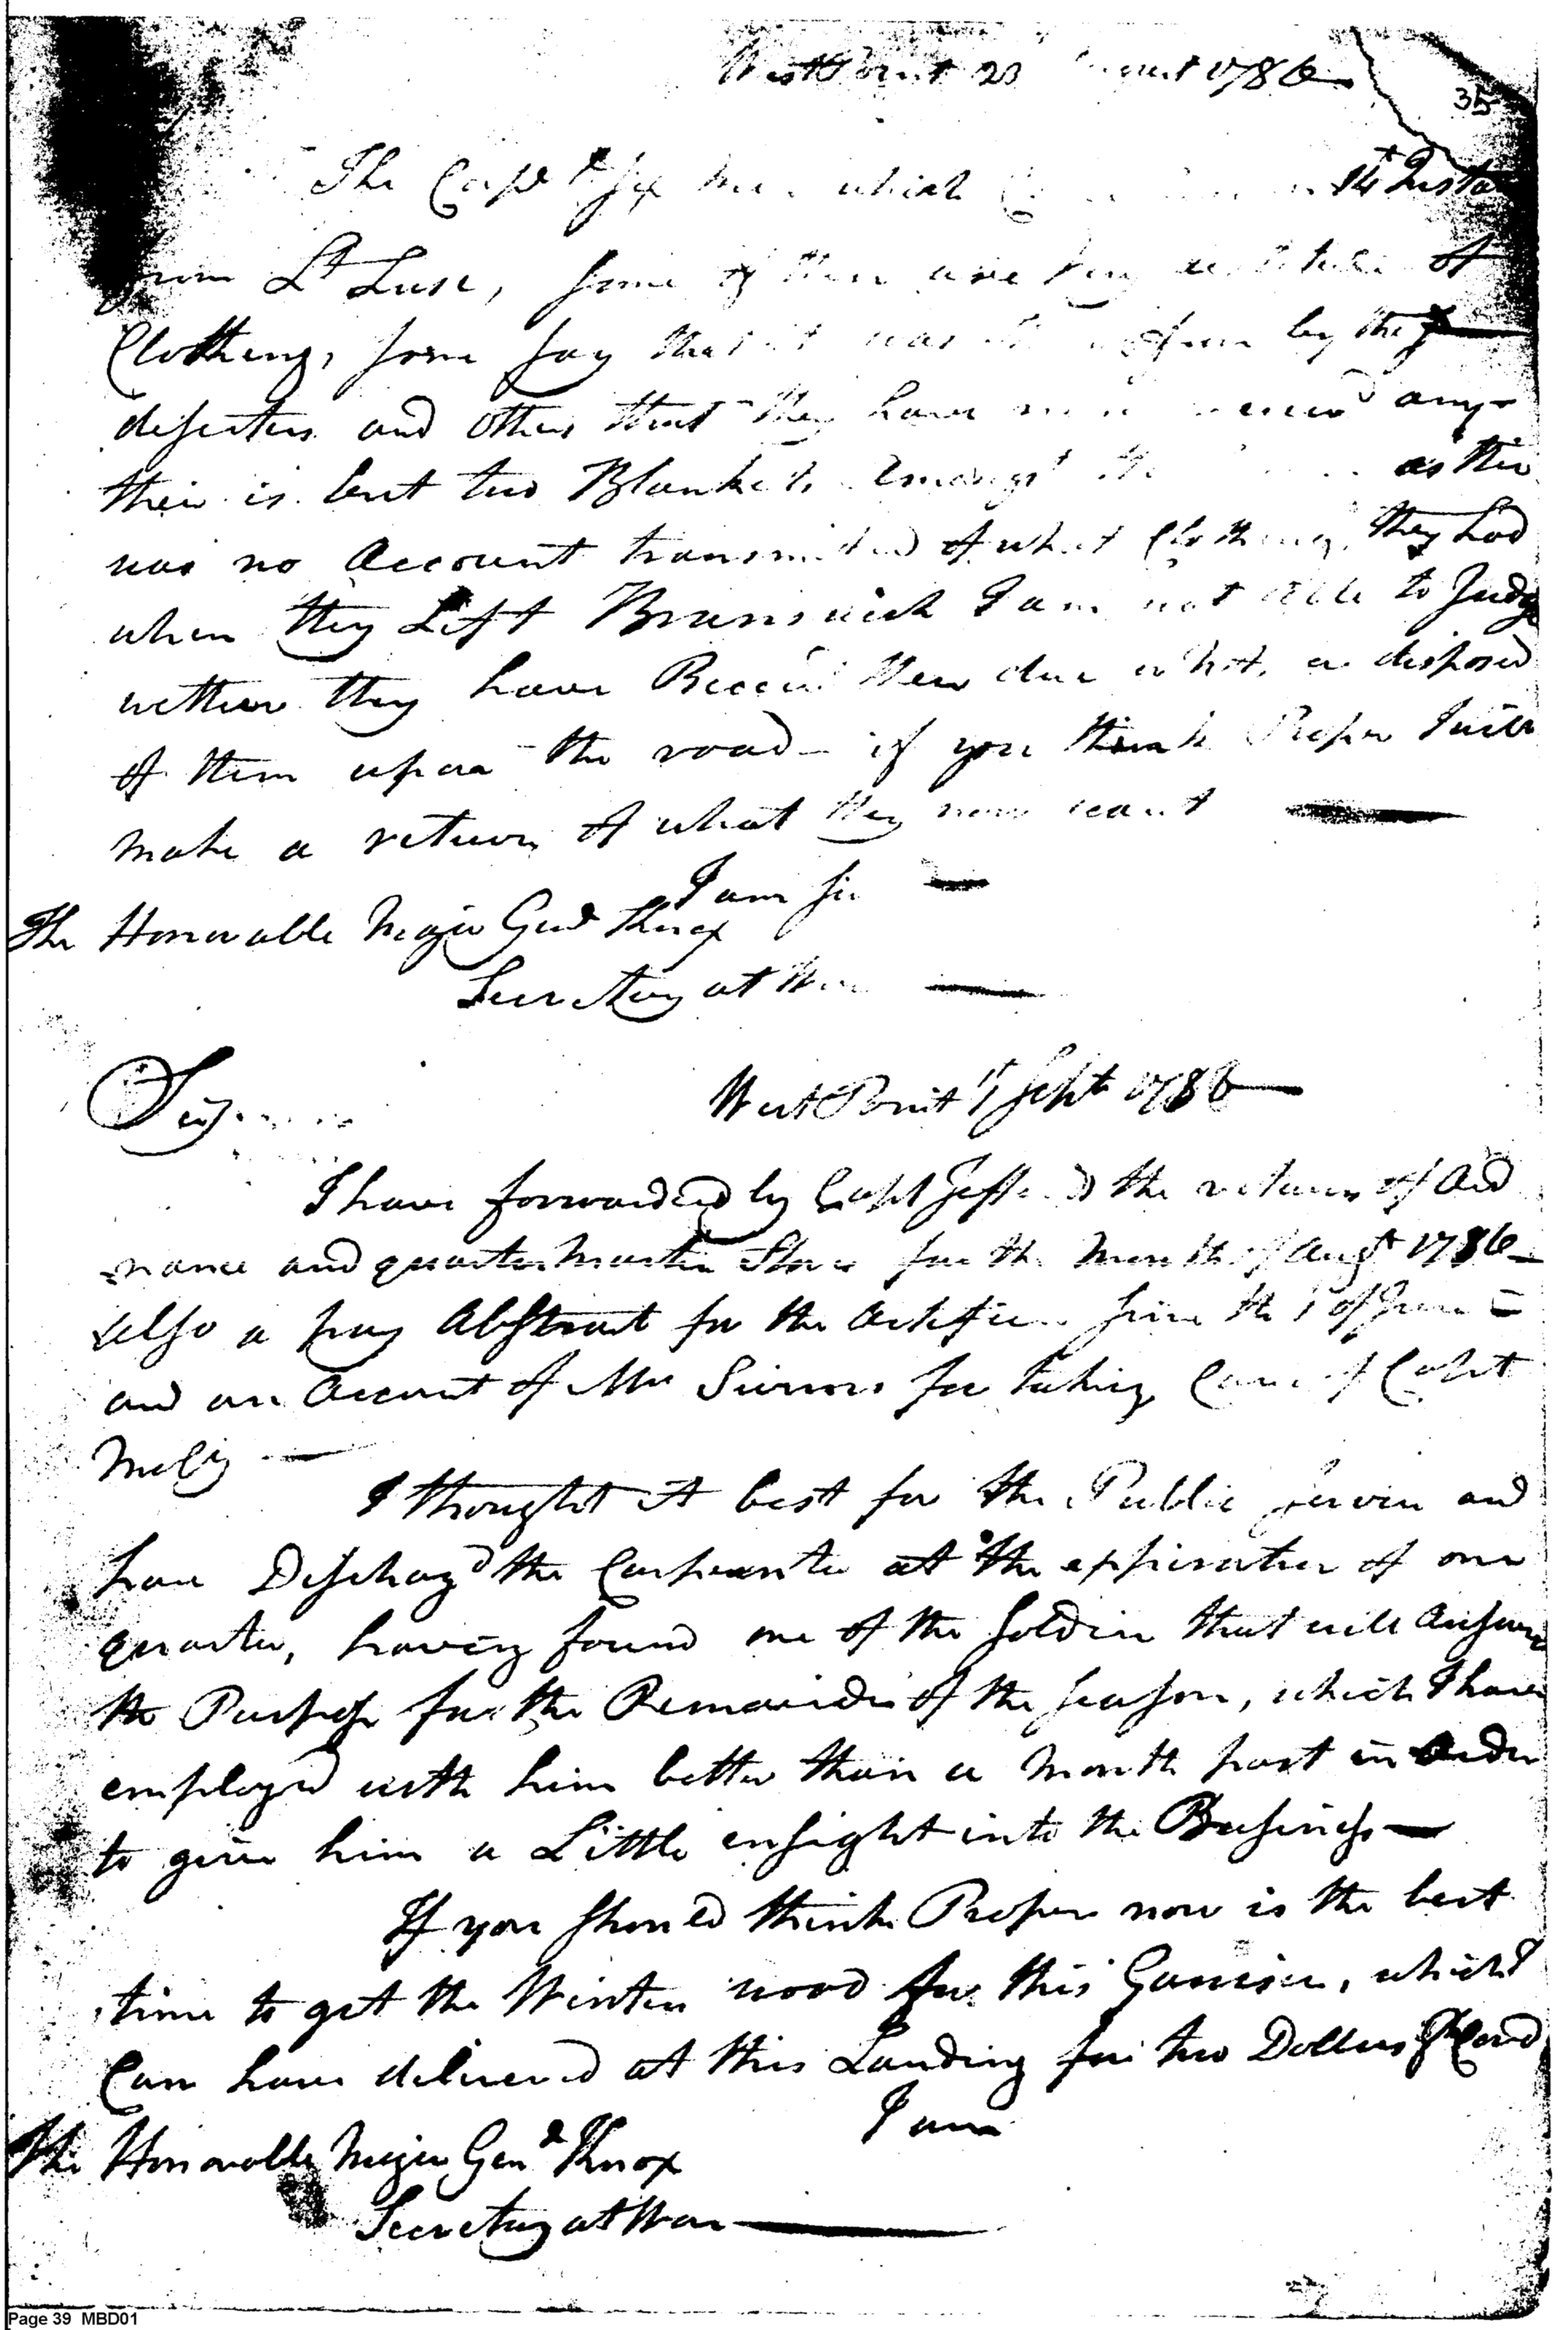 West Point 23 August 1786
35
The Corpl & six men which 14th Instant
from Lt Luse, some of them are very destitute of
Clothing, some say that it was by the
deserters and others that they have any
their is but two Blankets Amongst as their
was no Account transmitted of what Clothing they had
when they Left Brunswick I am not able to Judge
wether they have Received their due or not, or disposed
of them upon the road - if you think Proper I will
make a return of what they now want
I am Sir
The Honorable Major Genl Knox
Secretary at War
Sir,
West Point 1t Septr 1786
I have forwarded by Capt the return of Ord
nance and quarter Master Stores for the Month of Augt 1786
also a pay Abstract for the Artificers from the 1 of June
and an Account of Mrs for taking Care of Capt
I thought it best for the Public Service and
have Dischargd the Carpenter at the expiration of one
quarter, having found one of the Soldiers that will Answer
the Purpose for the Remainder of the season, which I have
employed with him better than a Month past in Order
to give him a Little ensight into the Business
If you should think Proper now is the best
time to get the Winter wood for this Garrison, which I
Can have delivered at this Landing for two Dollers Pr Cord
I am
The Honorable Major Genl Knox
Secretary at War
Page 39 MBD01